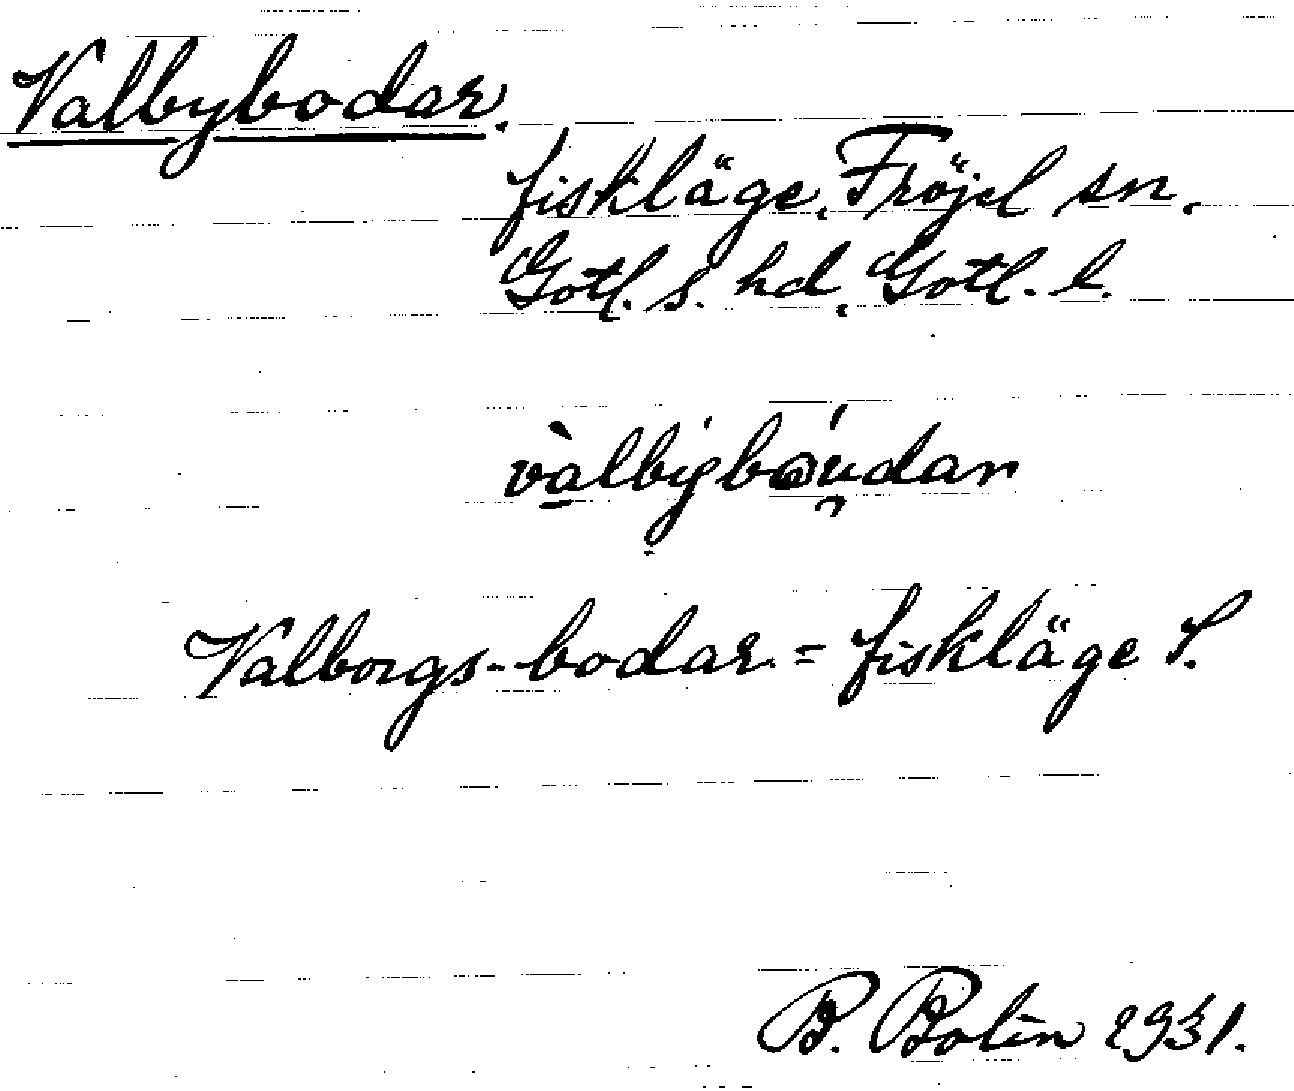 Valbybodar.
fiskläge, Fröjel sn.
Gotl. s. hd, Gotl. l.
vàlbybóudar
Valborgs-bodar. = fiskläge S.
B. Bolin 1931.